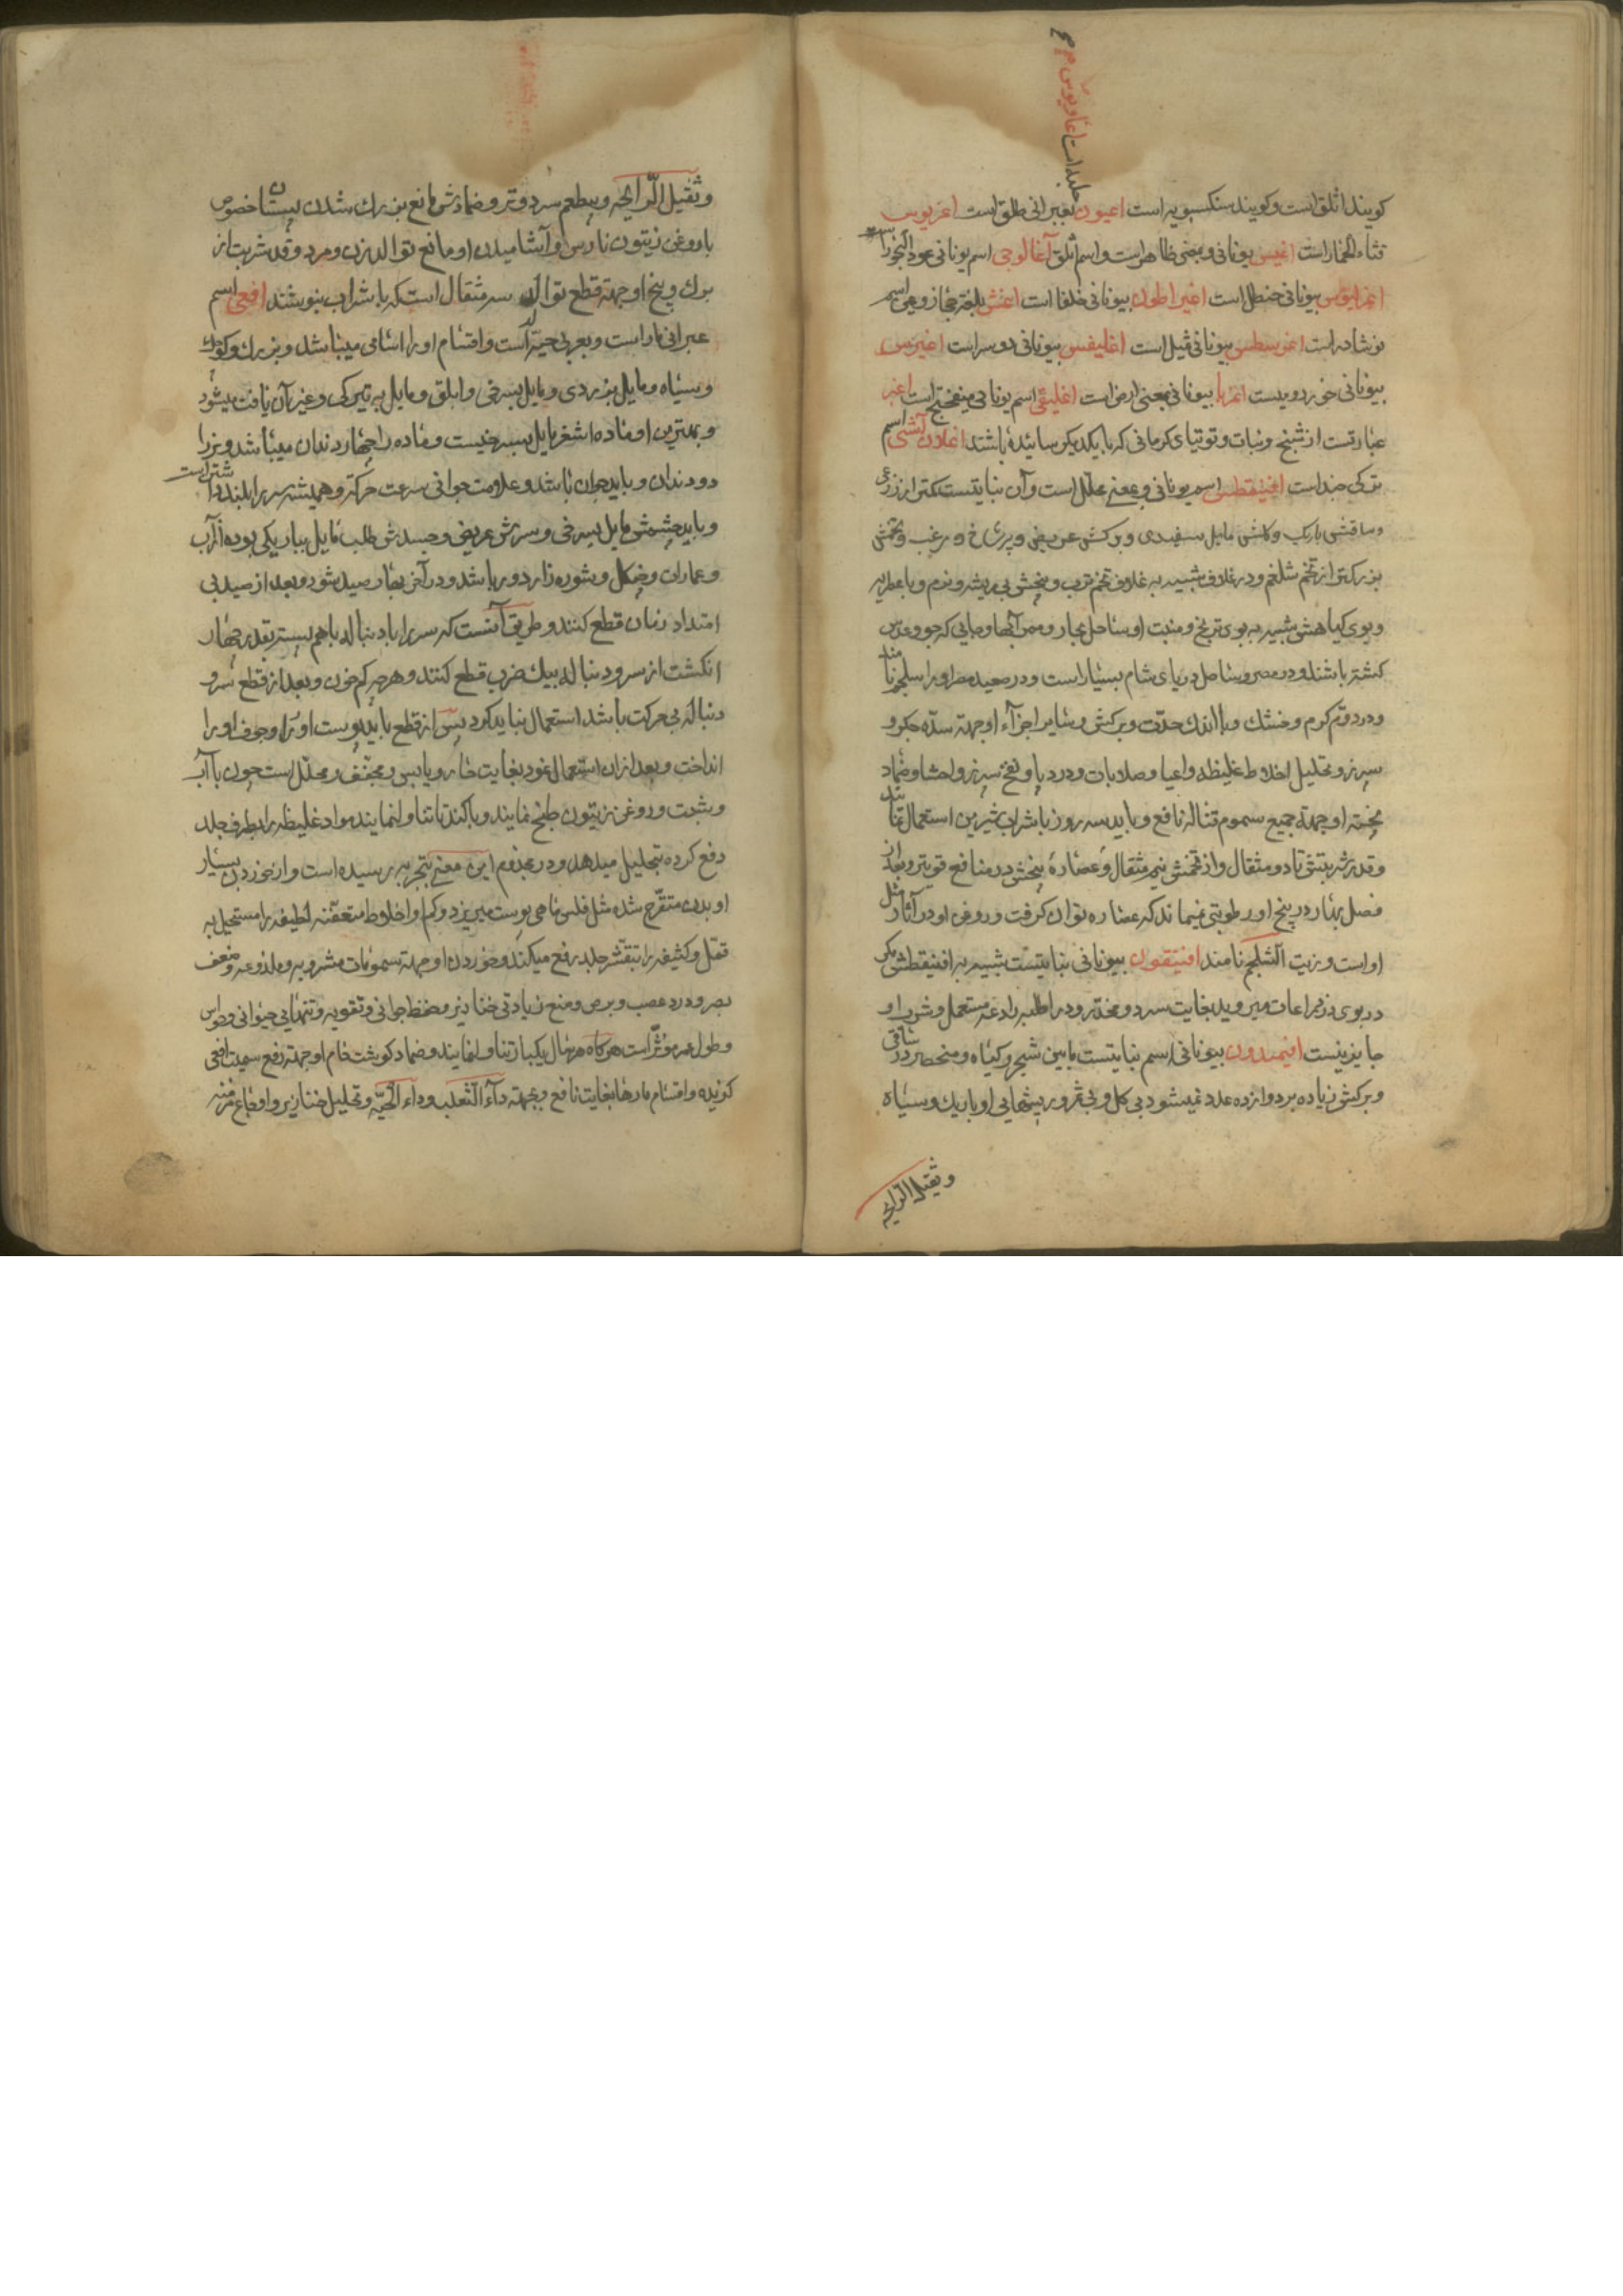 کویند اثلق است وکویند سنکسبویه است اعیون بعبرانی طلق است اغریوس
قثاء الحمار است اغیس یونانی و بمعنی طاهر است واسم اثلق آغالوجی اسم یونانی عود البخور است
اغرایوس بیونانی حنظل است اغیراطون بیونانی حلفا است اغنش بلغة مجاز رومی اسم
نوشادر است اغوسطس بیونانی ثیل است اغلیفس بیونانی دوسر است اغیرس
بیونانی جوز رومیست اغریا بیونانی بمعنی ارض است اغلیقی اسم یونانی میفختج است اغبر
عبارتست از شنج ونبات وتوتیای کرمانی که با یکدیکر سائیده باشند اغلان آتشی اسم
ترکی جند است افیثقطس اسم یونانی و بمعنی محلل است وآن نباتیست کمتر از ذرعی
وساقش باریک وکلش مایل بسفیدی وبرکش عریض و پرشاخ و مزغب وتخمش
بزرکتر از تخم شلغم ودر غلاف شبیه به غلاف تخم ترب وبیخش بی ریشه ونرم وبا عطریه
وبوی کیاهش شبیه به بوی ترنج ومنبت او ساحل بحار وممر آبها وجایی که جو وعدس
کشته باشند ودر مصر وساحل دریای شام بسیار است ودر صعید مصر او را سلجم نامند
ودر دوّم کرم وخشک وبا اندک حدّت وبرکش وسایر اجزآء او جهة سدّه جکر و
سپرز وتحلیل اخلاط غلیظه واعیا وصلابات ودرد پا ونفخ سپرز واحشا وضماد
پخته او جهة جمیع سموم قتاله نافع وباید سه روز با شراب شیرین استعمال نمایند
وقدر شربتش تا دو مثقال واز تخمش نیم مثقال وعصاره بیخش در منافع قویتر وبعد از
فصل بهار در بیخ او رطوبتی نمیماند که عصاره توان کرفت وروغن او در آثار مثل
او است وزیت الشلجم نامند افنیقون بیونانی نباتیست شبیه به افنیقطس مکر
در بوی در زراعات میروید بغایت سرد ومخدّر ودر اطلیه رادعه مستعمل وشرب او
جایز نیست افیمدیون بیونانی اسم نباتیست مابین شجر وکیاه ومنحصر در ساقی
وبرکش زیاده بر دوازده عدد نمیشود بی کل وبی ثمر وریشهایی او باریک وسیاه
وثقیل الرّایحه
وثقیل الرّایحه وبیطعم سرد وتر وضمادش مانع بزرک شدن پستان خصوص
با روغن زیتون نارس وآشامیدن او مانع توالد زن ومرد وقدر شربت از
برک وبیخ او جهة قطع توالد سه مثقال است که با شراب بنوشند افعی اسم
عبرانی مار است وبعربی حیّه است واقسام او را اسامی میباشد وبزرک وکوچک
وسیاه ومایل بزردی ومایل بسرخی وابلق ومایل به تیرکی وغیر آن یافت میشود
وبهترین او ماده اشغر مایل بسرخیست وماده را چهار دندان میباشد ونر را
دو دندان وباید جوان باشد وعلامت جوانی سرعت حرکة وهمیشه سر را بلند داشتن است
وباید چشمش مایل بسرخی وسرش عریض وجسدش صلب مایل بباریکی بوده از آب
وعماران وجنکل وشوره زار دور باشد ودر آخر بهار صید شود وبعد از صید بی
امتداد زمان قطع کنند وطریق آنست که سر را با دنباله باهم بسته بقدر چهار
انکشت از سر ودنباله بیک ضرب قطع کنند وهرچه کم خون وبعد از قطع سر و
دنباله بی حرکت باشد استعمال نباید کرد پس از قطع باید پوست او را وجوف او را
انداخت وبعد از ان استعمال نمود بغایت حار ویابس ومجفّف ومحلّل است چون با آب
وشبت وروغن زیتون طبخ نمایند وبا کندنا تناول نمایند مواد غلیظه را بطرف جلد
دفع کرده بتحلیل میدهد ودر مجذوم این معنی بتجربه رسیده است واز خوردن بسیار
او بدن متقرّح شده مثل فلس ماهی پوست میریزد وکم او اخلاط متعفّنه لطیفه را مستحیل به
قمل وکثیفه را بتقشّر جلد رفع میکند وخوردن او جهة سمومات مشروبه وملذوعه وضعف
بصر ودرد عصب وبرص ومنع زیادتی خنازیر وحفظ جوانی وتقویه قوتهایی حیوانی وحواس
وطول عمر مؤثّر است هرکاه هر سال یکبار تناول نمایند وضماد کوشت خام او جهة رفع سمیت افعی
کزیده واقسام مارها بغایت نافع وجهة دآء الثعلب ودآء الحیّه وتحلیل خنازیر واوجاع مزمنه